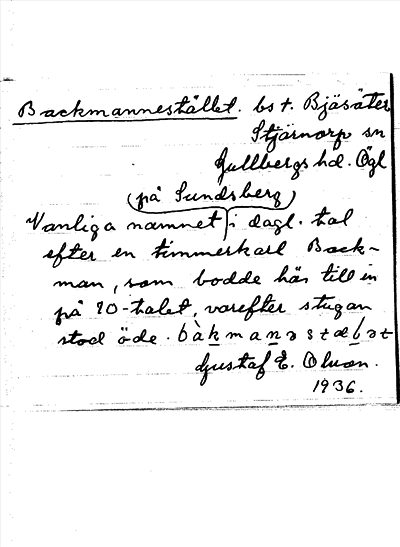 Backmannestället. bs t. Bjäsäter
Stjärnorp sn
Gullbergs hd. Ögl
(på Sundsberg)
Vanliga namnet i dagl. tal
efter en timmerkarl Back-
man, som bodde här till in
på 70-talet, varefter stugan
stod öde. bàkmanəstælət
Gustaf E. Olsson.
1936.